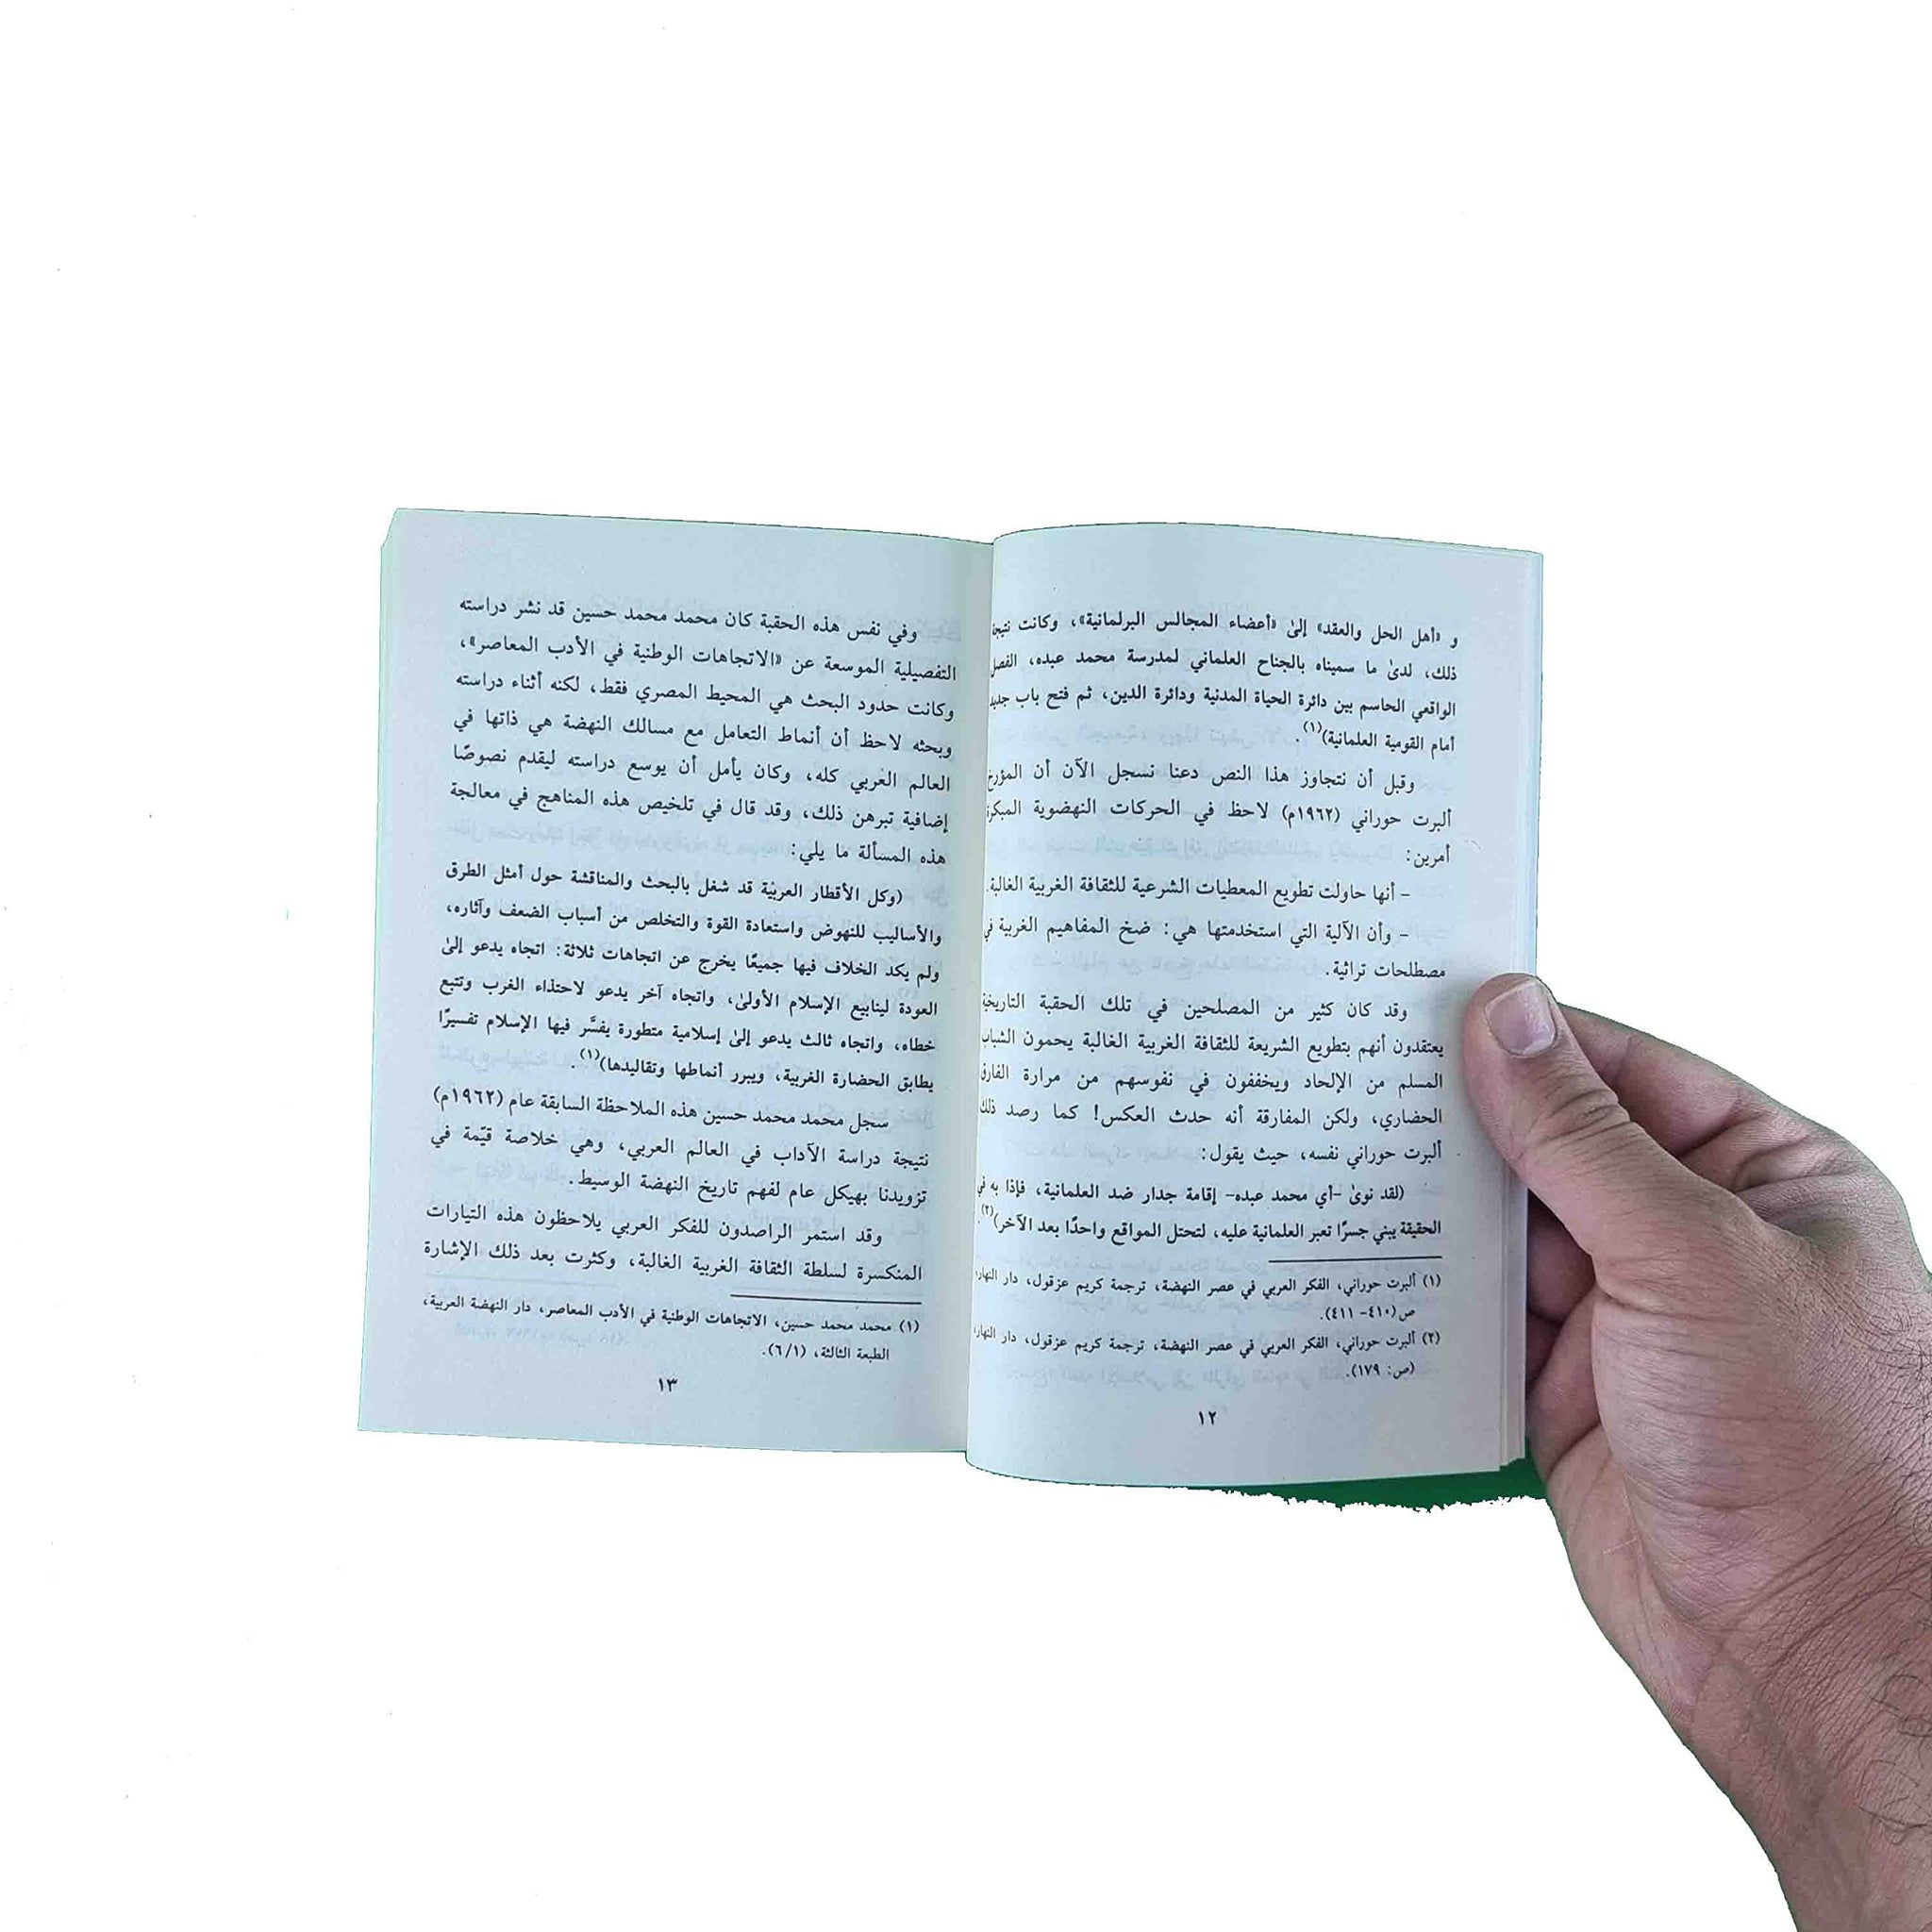 و «أهل الحل والعقد» إلىٰ «أعضاء المجالس البرلمانية»، وكانت نتيجة
ذلك، لدىٰ ما سميناه بالجناح العلماني لمدرسة محمد عبده، الفصل
الواقعي الحاسم بين دائرة الحياة المدنية ودائرة الدين، ثم فتح باب جديد
أمام القومية العلمانية)(١).
وقبل أن نتجاوز هذا النص دعنا نسجل الآن أن المؤرخ
ألبرت حوراني (١٩٦٢م) لاحظ في الحركات النهضوية المبكرة
أمرين:
- أنها حاولت تطويع المعطيات الشرعية للثقافة الغربية الغالبة.
- وأن الآلية التي استخدمتها هي: ضخ المفاهيم الغربية في
مصطلحات تراثية.
وقد كان كثير من المصلحين في تلك الحقبة التاريخية
يعتقدون أنهم بتطويع الشريعة للثقافة الغربية الغالبة يحمون الشباب
المسلم من الإلحاد ويخففون في نفوسهم من مرارة الفارق
الحضاري، ولكن المفارقة أنه حدث العكس! كما رصد ذلك
ألبرت حوراني نفسه، حيث يقول:
(لقد نوىٰ -أي محمد عبده- إقامة جدار ضد العلمانية، فإذا به في
الحقيقة يبني جسرًا تعبر العلمانية عليه، لتحتل المواقع واحدًا بعد الآخر)(٢).
(١) ألبرت حوراني، الفكر العربي في عصر النهضة، ترجمة كريم عزقول، دار النهار،
ص(٤١٠- ٤١١).
(٢) ألبرت حوراني، الفكر العربي في عصر النهضة، ترجمة كريم عزقول، دار النهار،
(ص: ١٧٩).
١٢
وفي نفس هذه الحقبة كان محمد محمد حسين قد نشر دراسته
التفصيلية الموسعة عن «الاتجاهات الوطنية في الأدب المعاصر»،
وكانت حدود البحث هي المحيط المصري فقط، لكنه أثناء دراسته
وبحثه لاحظ أن أنماط التعامل مع مسالك النهضة هي ذاتها في
العالم العربي كله، وكان يأمل أن يوسع دراسته ليقدم نصوصًا
إضافية تبرهن ذلك، وقد قال في تلخيص هذه المناهج في معالجة
هذه المسألة ما يلي:
(وكل الأقطار العربيَّة قد شغل بالبحث والمناقشة حول أمثل الطرق
والأساليب للنهوض واستعادة القوة والتخلص من أسباب الضعف وآثاره،
ولم يكد الخلاف فيها جميعًا يخرج عن اتجاهات ثلاثة: اتجاه يدعو إلىٰ
العودة لينابيع الإسلام الأولىٰ، واتجاه آخر يدعو لاحتذاء الغرب وتتبع
خطاه، واتجاه ثالث يدعو إلىٰ إسلامية متطورة يفسَّر فيها الإسلام تفسيرًا
يطابق الحضارة الغربية، ويبرر أنماطها وتقاليدها)(١).
سجل محمد محمد حسين هذه الملاحظة السابقة عام (١٩٦٢م)
نتيجة دراسة الآداب في العالم العربي، وهي خلاصة قيّمة في
تزويدنا بهيكل عام لفهم تاريخ النهضة الوسيط.
وقد استمر الراصدون للفكر العربي يلاحظون هذه التيارات
المنكسرة لسلطة الثقافة الغربية الغالبة، وكثرت بعد ذلك الإشارة
(١) محمد محمد حسين، الاتجاهات الوطنية في الأدب المعاصر، دار النهضة العربية،
الطبعة الثالثة، (٦/١).
١٣